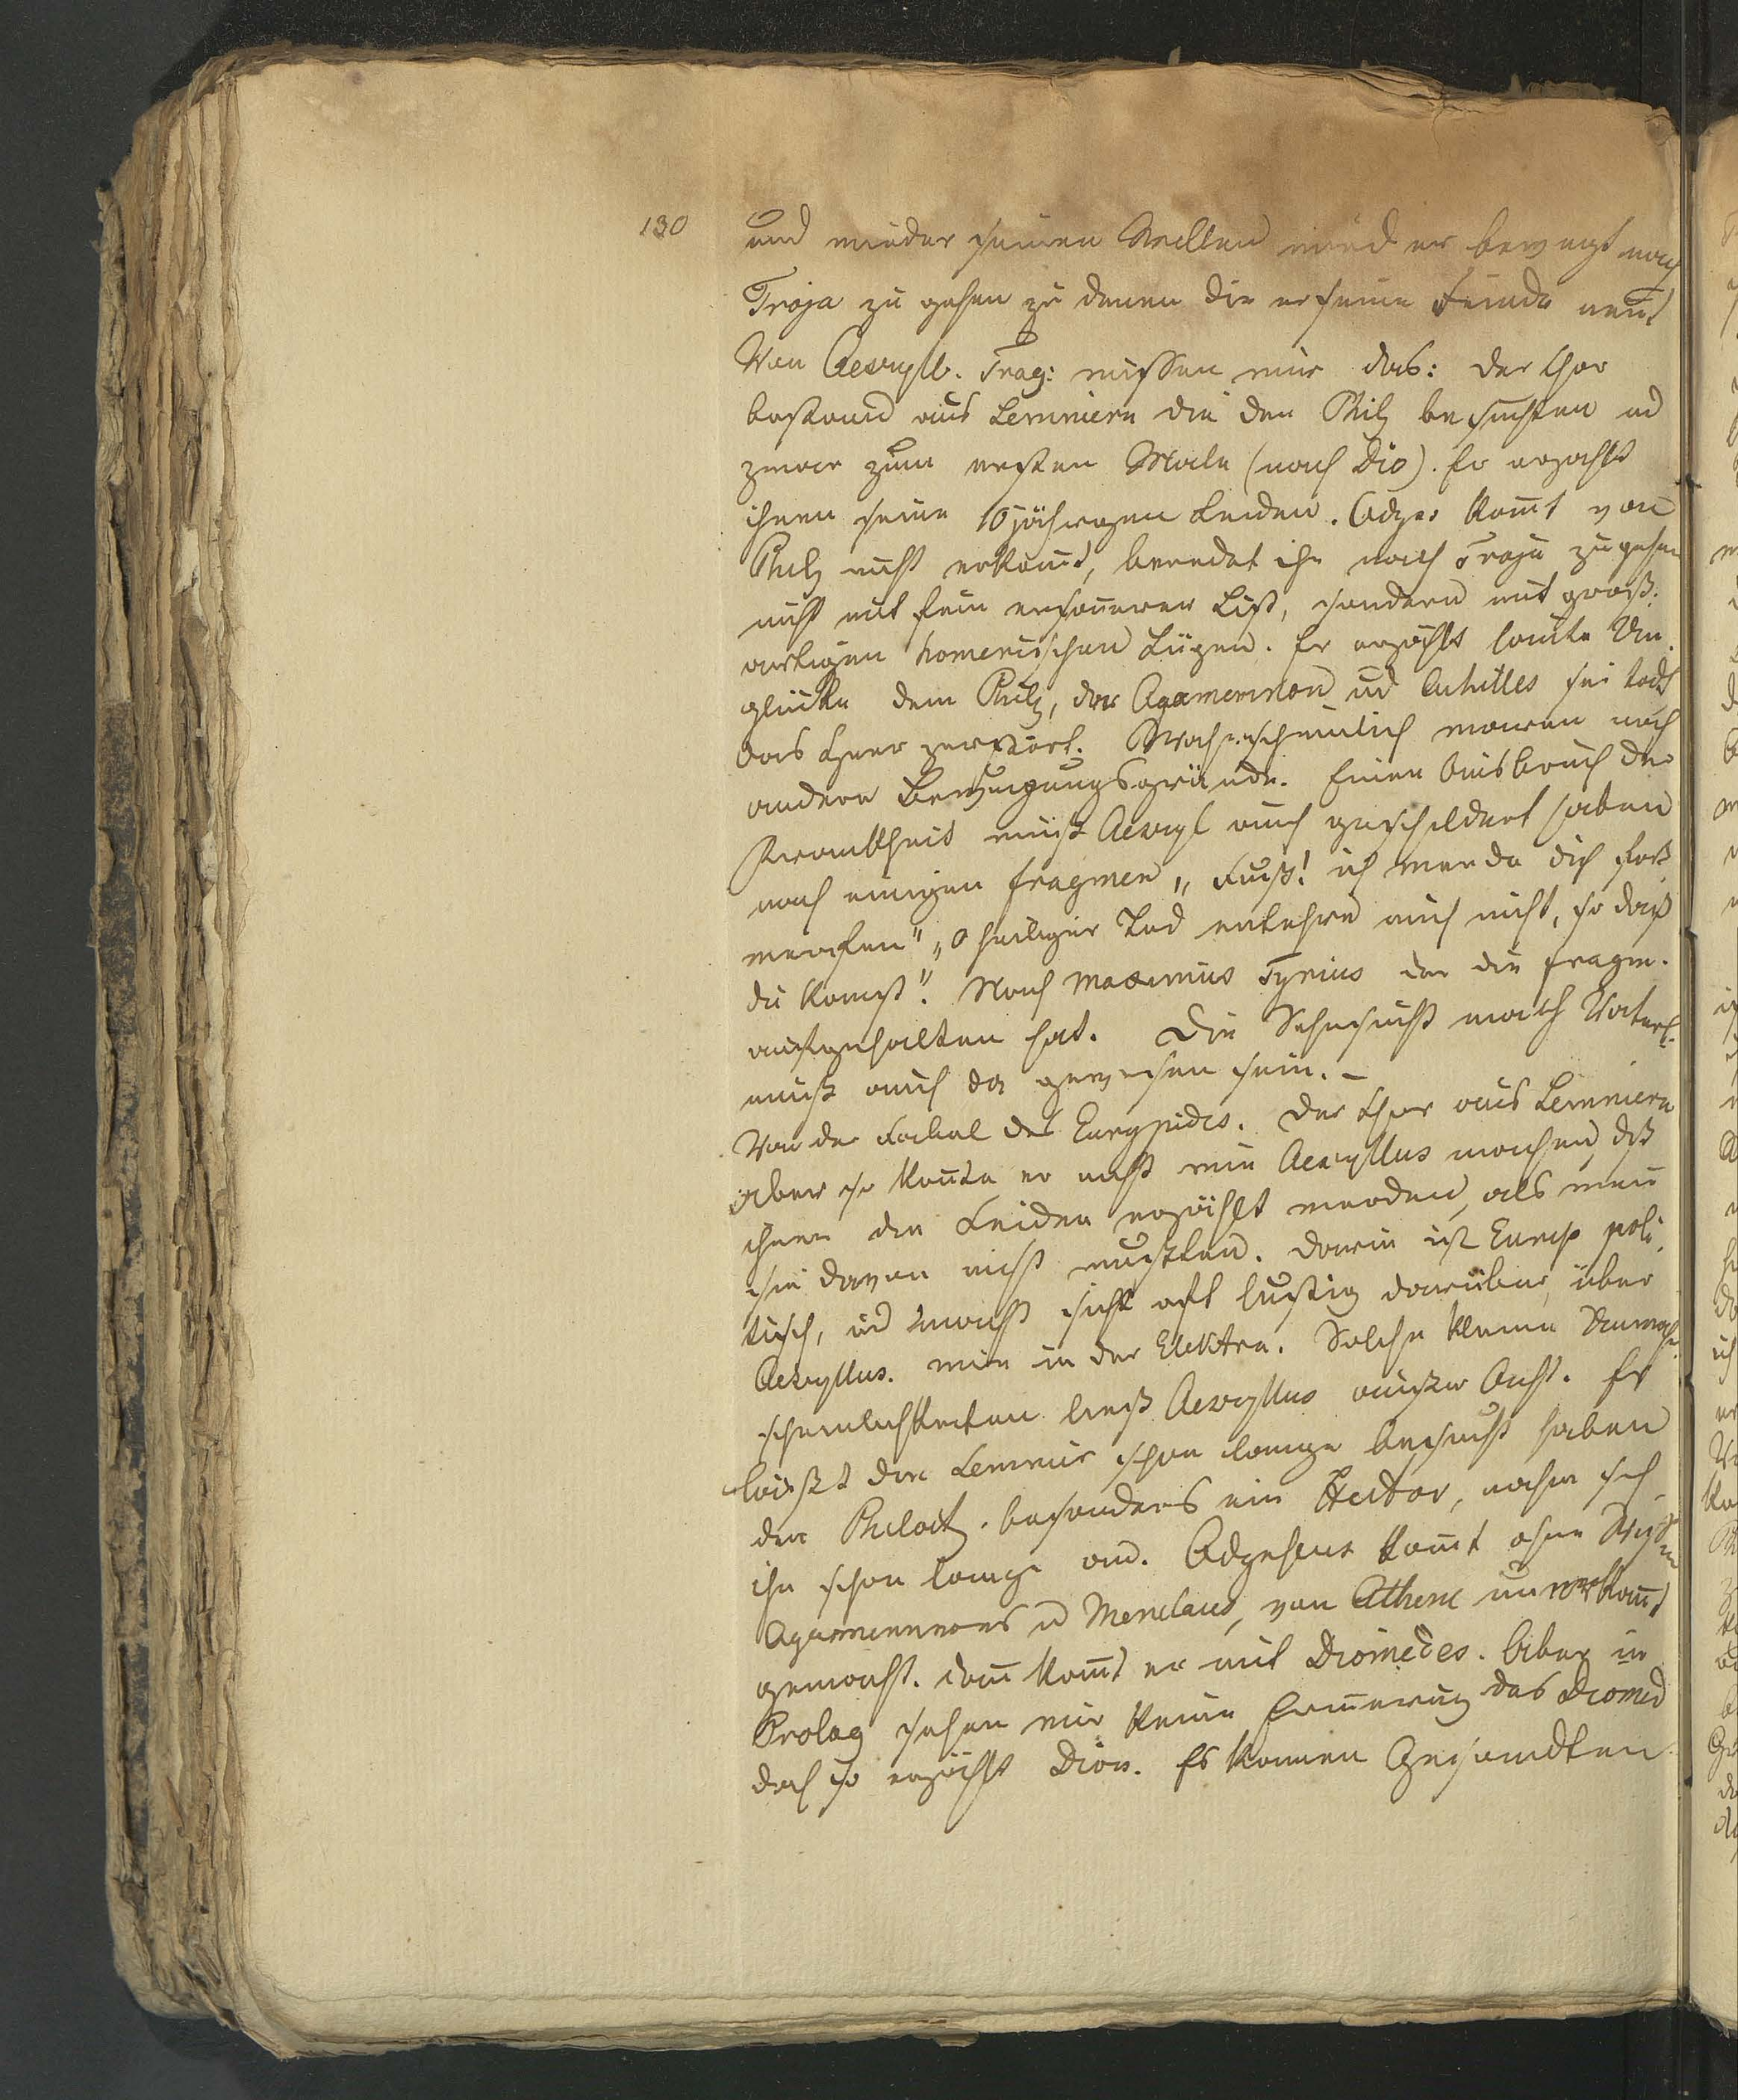 130
und wieder seinen Willen wird er bewegt nach
Troja zu gehen zu denen die er seine Feinde nent
Von Aescyll. Trag: wissen wir das: der Chor
bestand aus Lemniern die den Phil besuchten ud
zwar zum ersten Male (nach Dio). Er erzählt
ihnen seine 10jährigen Leiden. Odyss komt von
Phil nicht erkannt, beredet ihn nach Troja zu gehen
nicht mit fein ersonnener List, sondern mit groß-
artigen homerischen Lügen. Er erzählt lauter Un-
glücke dem Phil, das Agamemnon ud Achilles sei todt
das Heer zerstört. Wahrscheinlich waren noch
andere Bewegungsgründe. Einen Ausbruch der
Krankheit muß Aescyl auch geschildert haben
nach einigen Fragmen „Fuß! ich werde dich fort
werfen" „o heiliger Tod entehre mich nicht, so daß
du komst". Nach Maximus Tyrius der die Fragm.
aufgehalten hat. Die Sehnsucht nach Vaterl.
muß auch da gewesen sein. –
Von der Fabel des Eurypides. Der Chor aus Lemniern
aber so konnte er nicht wie Aescyllus machen, dß
ihnen die Leiden erzählt werden, als wen
sie davon nicht wußten. Darin ist Eurip poli-
tisch, ud macht sich oft lustig darüber, über
Aescyllus. wie in der Elektra. Solche kleine Unwahr-
scheinlichkeiten ließ Aescyllus außer Acht. Er
läßt die Lemnier schon lange besucht haben
den Philoct. besonders ein Hector, nahm sich
ihn schon lange an. Odysseus komt ohne Wissen
Agamemnons ud Menelaus, von Athene unerkannt
gemacht. Dann komt er mit Diomedes. Aber in
Prolog sehen wir keine Erinnerung des Diomed
doch so erzählt Dion. Es kommen Gesandten